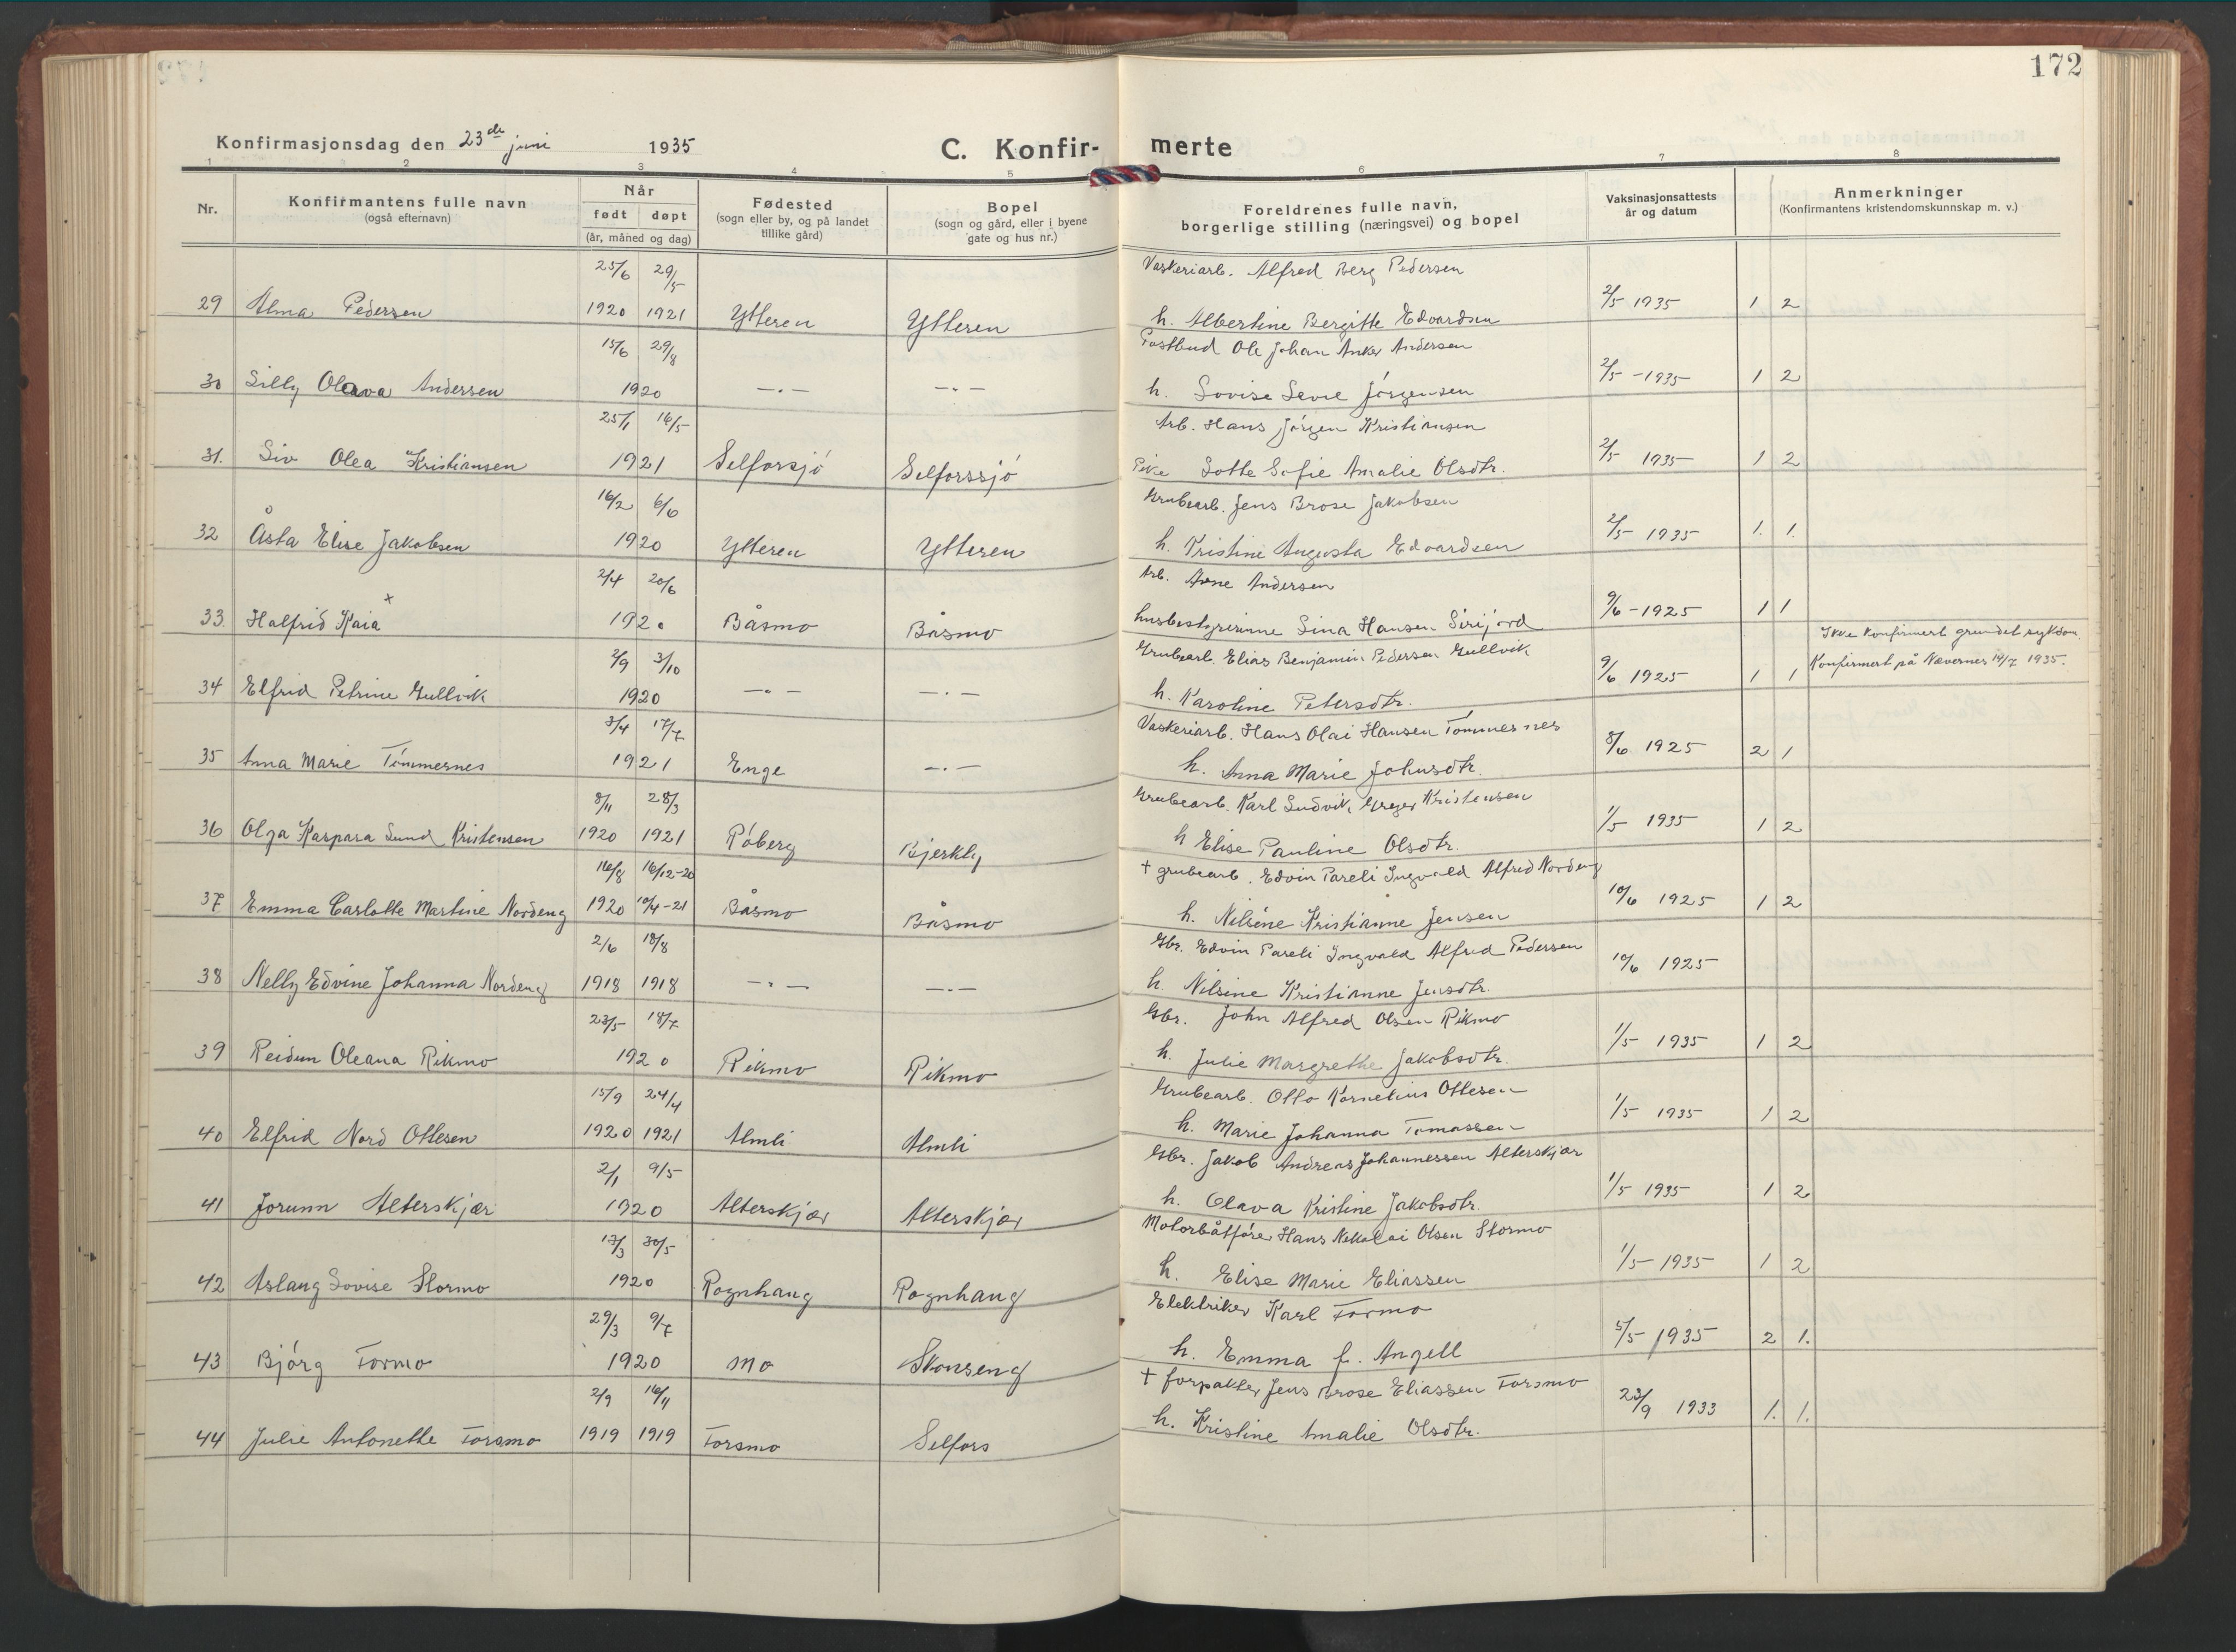 172
Konfirmasjonsdag den 23de juni 1935
C. Konfir-merte
1 2 3 4 5 6 7 8
Nr.
Konfirmantens fulle navn
(også efternavn)
Når
født døpt
(år, måned og dag)
Fødested
(sogn eller by, og på landet
tillike gård)
Bopel
(sogn og gård, eller i byene
gate og hus nr.)
Foreldrenes fulle navn,
borgerlige stilling (næringsvei) og bopel
Vaksinasjonsattests
år og datum
Anmerkninger
(Konfirmantens kristendomskunnskap m. v.)
25/6 29/5 Vaskeriarb. Alfred Berg Pedersen
29 Alma Pedersen 1920 1921 Ytteren Ytteren h. Albertine Bergitte Edvardsen 2/5 1935 1 2
15/6 29/8 Postbud Ole Johan Anker Andersen
30 Lilly Olava Andersen 1920 —„— —„— h. Lovise Jörgensen 2/5 - 1935 1 2
25/1 16/5 Arb. Hans Jörgen Kristiansen
31. Liv Olea Kristiansen 1921 Selforsjö Selforssjö Pike Lotte Sofie Amalie Olsdtr. 2/5 1935 1 2
16/2 6/6 Grubearb. Jens Brose Jakobsen
32 Åsta Elise Jakobsen 1920 Ytteren Ytteren h. Kristine Augusta Edvardsen 2/5 - 1935 1. 1.
2/4 20/6 Arb. Arne Andersen
33. Halfrid Kaia x 1920 Båsmo Båsmo husbestyrerinne Sina Hansen 9/6 - 1925 1 1
2/9 3/10 Grubearb. Elias Benjamin Pedersen Gullvik Ikke konfirmert grundet sykdom.
34 Elfrid Petrine Gullvik 1920 —„— —„— h. Karoline Petersdtr. 9/6 1925 1 1 Konfirmert på Nævernes 14/7 1935.
3/4 17/7 Vaskeriarb. Hans Olai Hansen Tömmernes
35 Anna Marie Tömmernes 1921 Enge —„— h. Anna Marie Johnsdtr. 8/6 1925 2 1
8/11 28/3 Grubearb. Karl Ludvik Greger Kristensen
36 Olga Kaspara Lund Kristensen 1920 1921 Röberg Bjerkly h Elise Pauline Olsdtr. 1/5 1935 1 2
16/8 16/12-20 + grubearb. Edvin Pareli Ingvald Alfred Nordeng
37 Emma Carlotte Martine Nordeng 1920 10/4-21 Båsmo Båsmo h. Nilsine Kristianne Jensen 10/6 1925 1 2
2/6 18/8 Gbr. Edvin Pareli Ingvald Alfred Pedersen
38 Nelly Edvine Johanna Nordeng 1918 1918 —„— —„— h. Nilsine Kristianne Jensdtr. 10/6 1925
23/5 18/7 Gbr. John Alfred Olsen Rikmo
39 Reidun Oleana Rikmo 1920 Rikmo Rikmo h. Julie Margrethe Jakobsdtr. 1/5 1935 1 2
15/9 24/4 Grubearb. Otto Kornelius Ottesen
40 Elfrid Nord Ottesen 1920 1921 Almli Almli h. Marie Johanna Tomassen 1/5 1935 1 2
2/1 9/5 Gbr. Jakob Andreas Johannessen Alterskjær
41 Jorunn Alterskjær 1920 Alterskjær Alterskjær h. Olava Kristine Jakobsdtr. 1/5 1935 1 2
13/3 30/5 Motorbåtförer Hans Nikolai Olsen Stormo
42 Aslaug Lovise Stormo 1920 Rognhaug Rognhaug h. Elise Marie Eliassen 1/5 - 1935 1 2
29/3 9/7 Elektriker Karl Formo
43 Bjórg Formo 1920 Mo Skonseng h. Emma f. Angell 5/5 1935 2 1.
2/9 16/11 + forpakter Jens Brose Eliassen Forsmo
44 Julie Antonette Forsmo 1919 1919 Forsmo Selfors h. Kristine Amalie Olsdtr. 23/9 1933 1. 1.